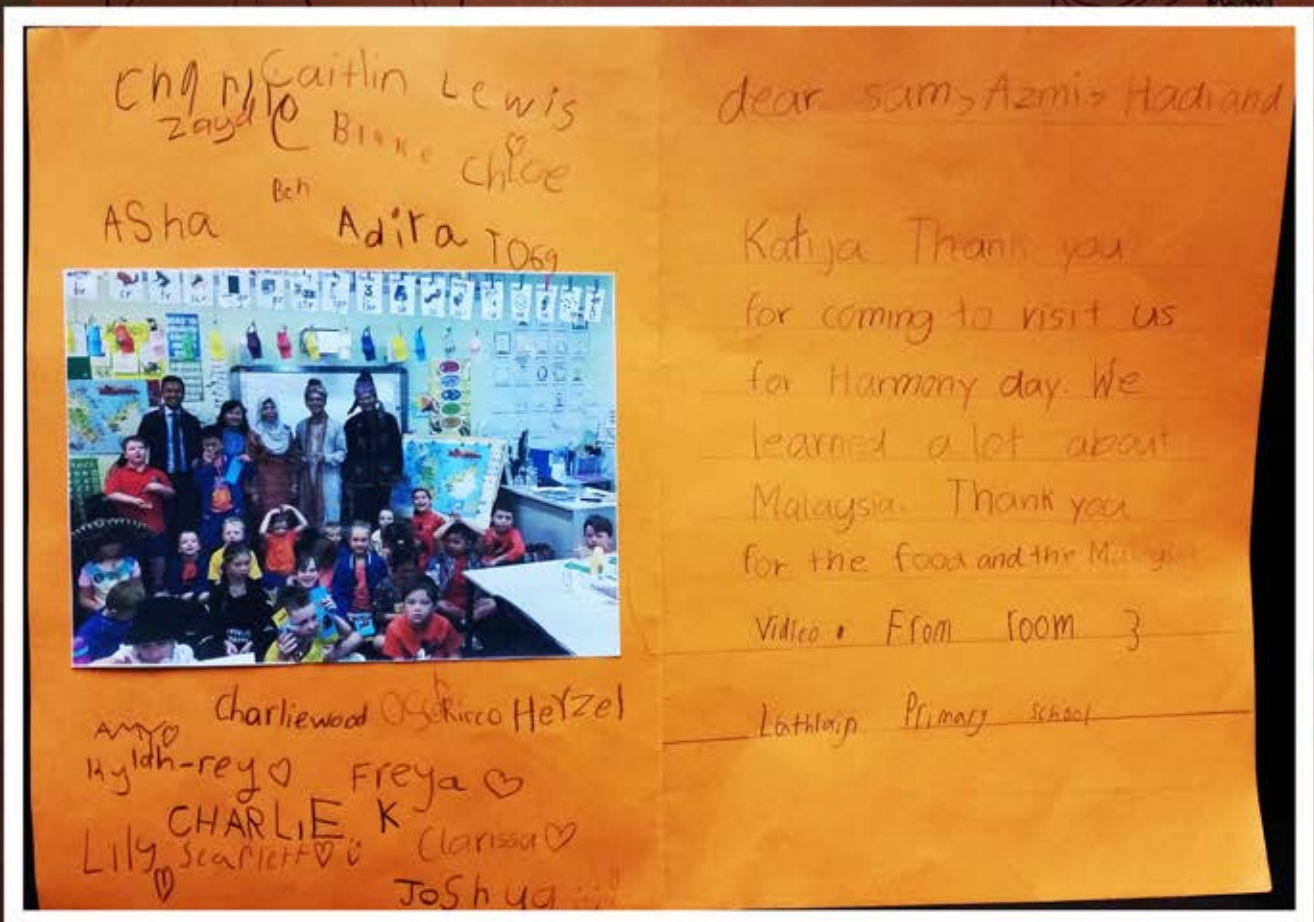 Charlie Caitlin Lewis
Zayd Blake Chloe
Ben
ASha Adira
br cr fr
Charliewood Ricco Herzel
Amy
Freya
CHARLIE K
Lily Scarlett Clarissa
JoShua
dear sam, Azmi, Hadi and
Katija Thank you
for coming to visit us
for Harmony day. We
learned a lot about
Malaysia. Thank you
for the food and the
Video. From room 3
Lathlain Primary school